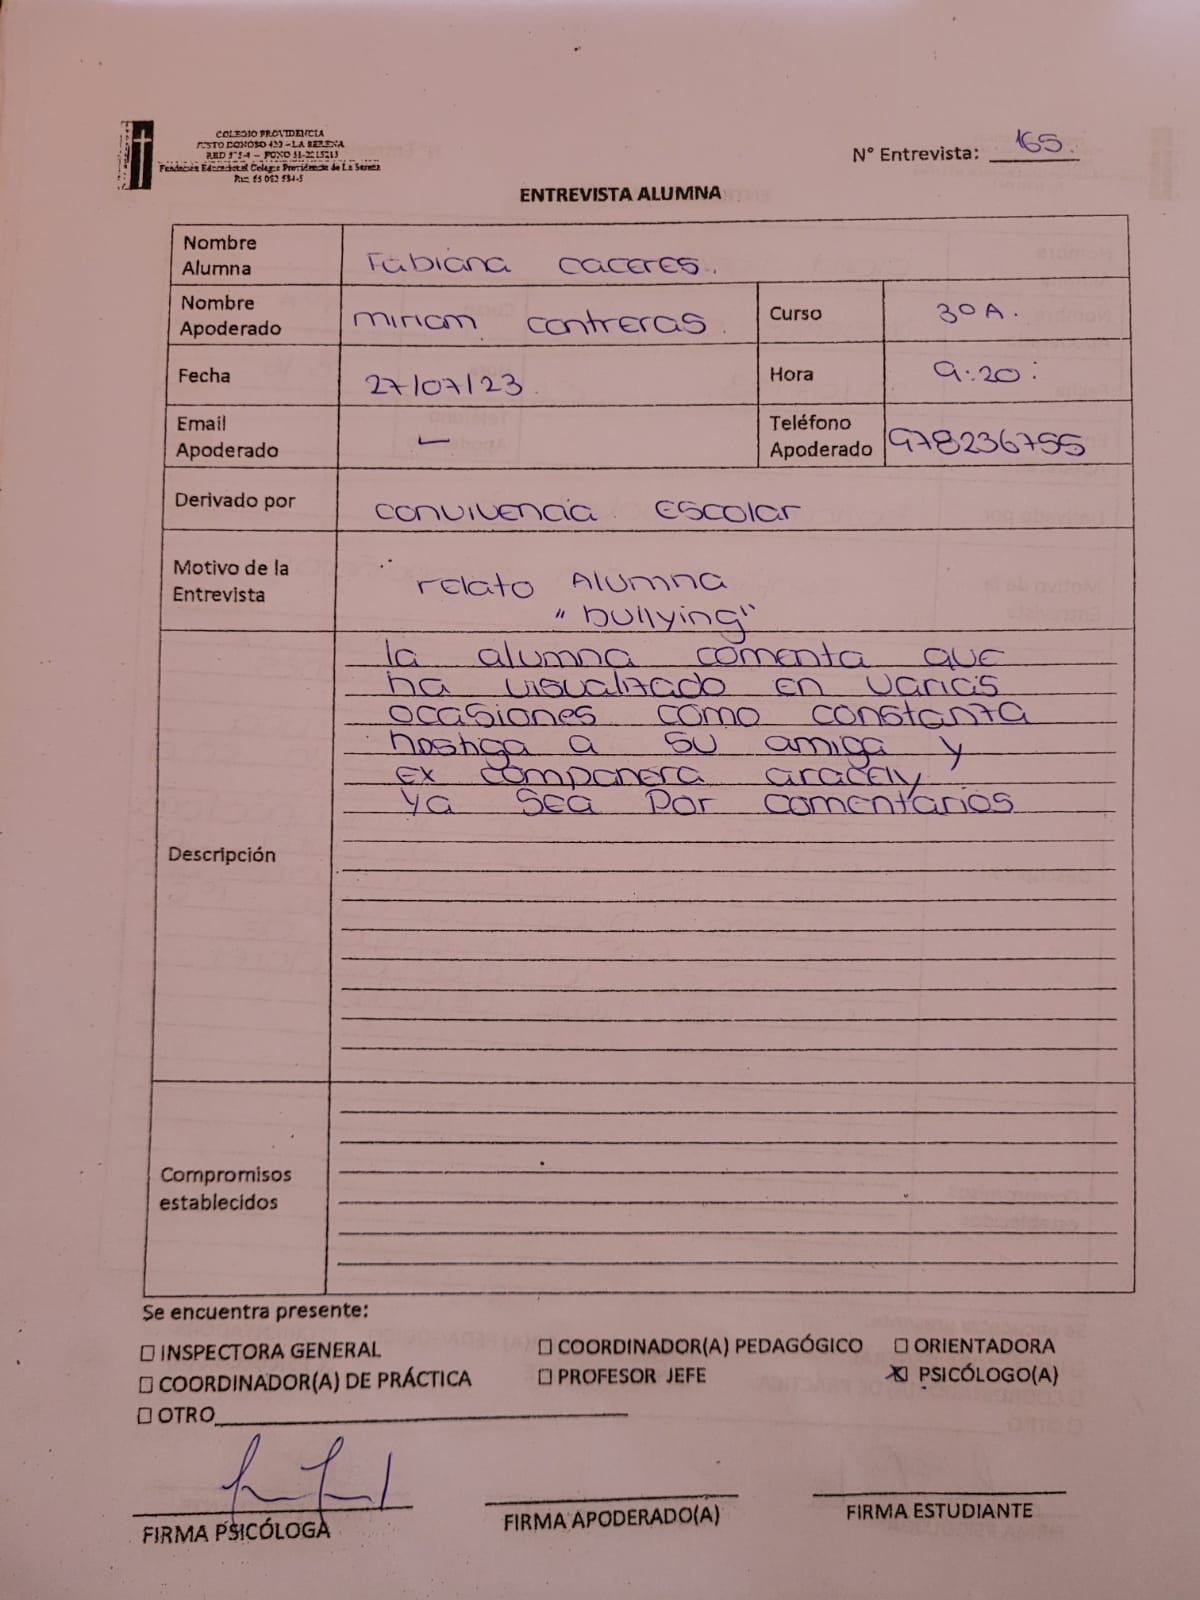 COLEGIO PROVIDENCIA
JUSTO DONOSO 420 – LA SERENA
Fundación Educacional Colegio Providencia de La Serena
N° Entrevista: 165.
ENTREVISTA ALUMNA
Nombre Alumna Fabiana caceres.
Nombre Apoderado miriam contreras. Curso 3ºA.
Fecha 27/07/23. Hora 9:20:
Email Apoderado – Teléfono Apoderado 978236755
Derivado por convivencia Escolar
Motivo de la Entrevista relato Alumna
"bullying"
Descripción
la alumna comenta que
ha visualizado en varias
ocasiones como constanza
hostiga a su amiga y
ex compañera aracely
ya sea por comentarios
Compromisos establecidos
Se encuentra presente:
☐ INSPECTORA GENERAL ☐ COORDINADOR(A) PEDAGÓGICO ☐ ORIENTADORA
☐ COORDINADOR(A) DE PRÁCTICA ☐ PROFESOR JEFE ☒ PSICÓLOGO(A)
☐ OTRO
FIRMA PSICÓLOGA FIRMA APODERADO(A) FIRMA ESTUDIANTE